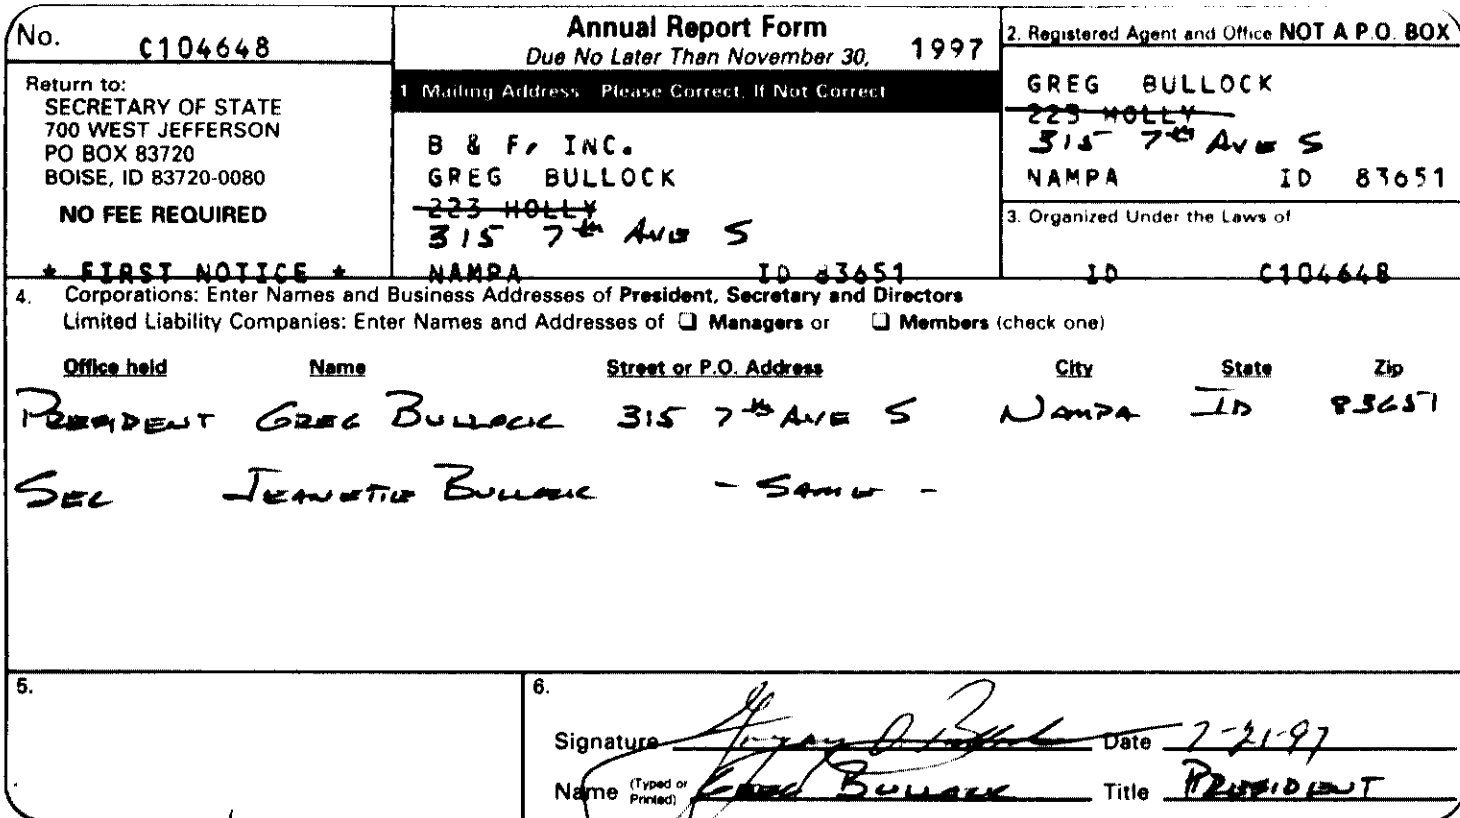 No. C104648
Return to:
SECRETARY OF STATE
700 WEST JEFFERSON
PO BOX 83720
BOISE, ID 83720-0080
NO FEE REQUIRED
* FIRST NOTICE *
Annual Report Form
Due No Later Than November 30, 1997
1 Mailing Address Please Correct, If Not Correct
B & F, INC.
GREG BULLOCK
223 HOLLY
315 7th AVE S
NAMPA ID 83651
2. Registered Agent and Office NOT A P.O. BOX
GREG BULLOCK
223 HOLLY
315 7th AVE S
NAMPA ID 83651
3. Organized Under the Laws of
ID C104648
4. Corporations: Enter Names and Business Addresses of President, Secretary and Directors
Limited Liability Companies: Enter Names and Addresses of ❑ Managers or ❑ Members (check one)
Office held Name Street or P.O. Address City State Zip
PRESIDENT GREG BULLOCK 315 7th AVE S NAMPA ID 83651
SEC JEANETTE BULLOCK - SAME -
5.
6.
Signature Date 7-21-97
Name (Typed or Printed) GREG BULLOCK Title PRESIDENT